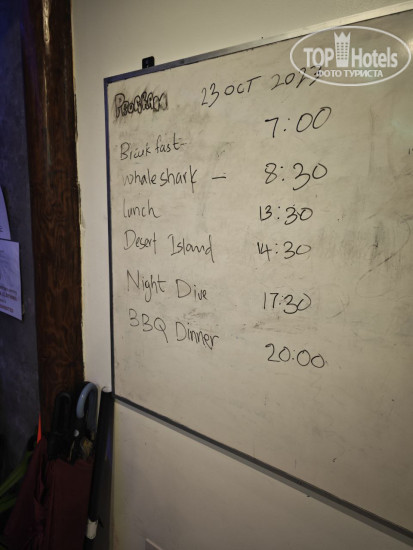 TOP Hotels
ФОТО ТУРИСТА
Program 23 OCT
Breakfast- 7:00
whaleshark - 8:30
lunch 13:30
Desert Island 14:30
Night Dive 17:30
BBQ Dinner 20:00